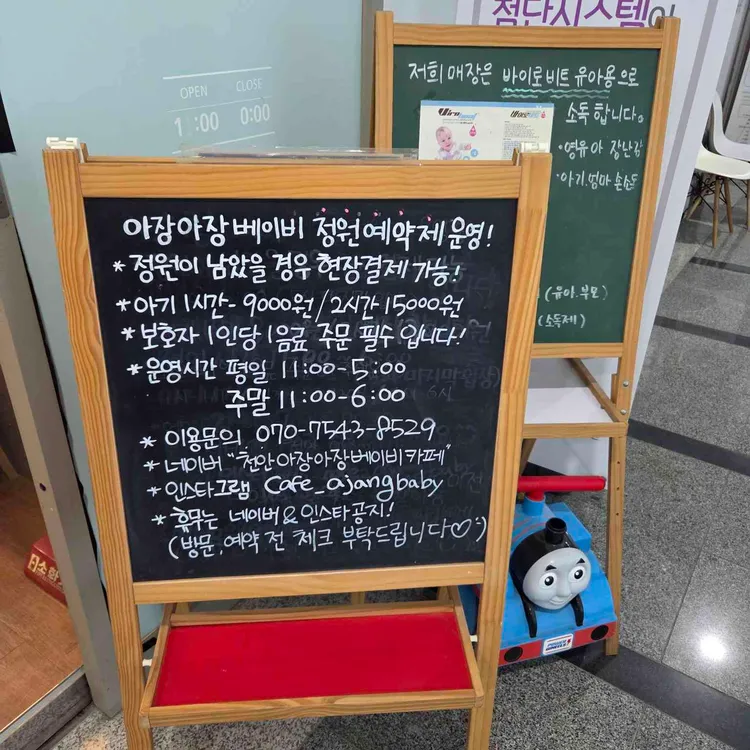 첨단시스템이
OPEN CLOSE
1 :00 0:00
저희 매장은 바이로비트 유아용으로
소독합니다.
·영유아 장난감
·아기.엄마 손소독
(유아.부모)
(소독제)
아장아장 베이비 정원 예약제 운영!
* 정원이 남았을 경우 현장결제 가능!
* 아기 1시간- 9000원/2시간 15000원
* 보호자 1인당 1음료 주문 필수 입니다!
* 운영시간 평일 11:00-5:00
주말 11:00-6:00
* 이용문의. 070-7543-8529
* 네이버 "천안아장아장베이비카페"
* 인스타그램 Cafe_ajangbaby
* 휴무는 네이버&인스타공지!
(방문,예약 전 체크 부탁드립니다♡:)